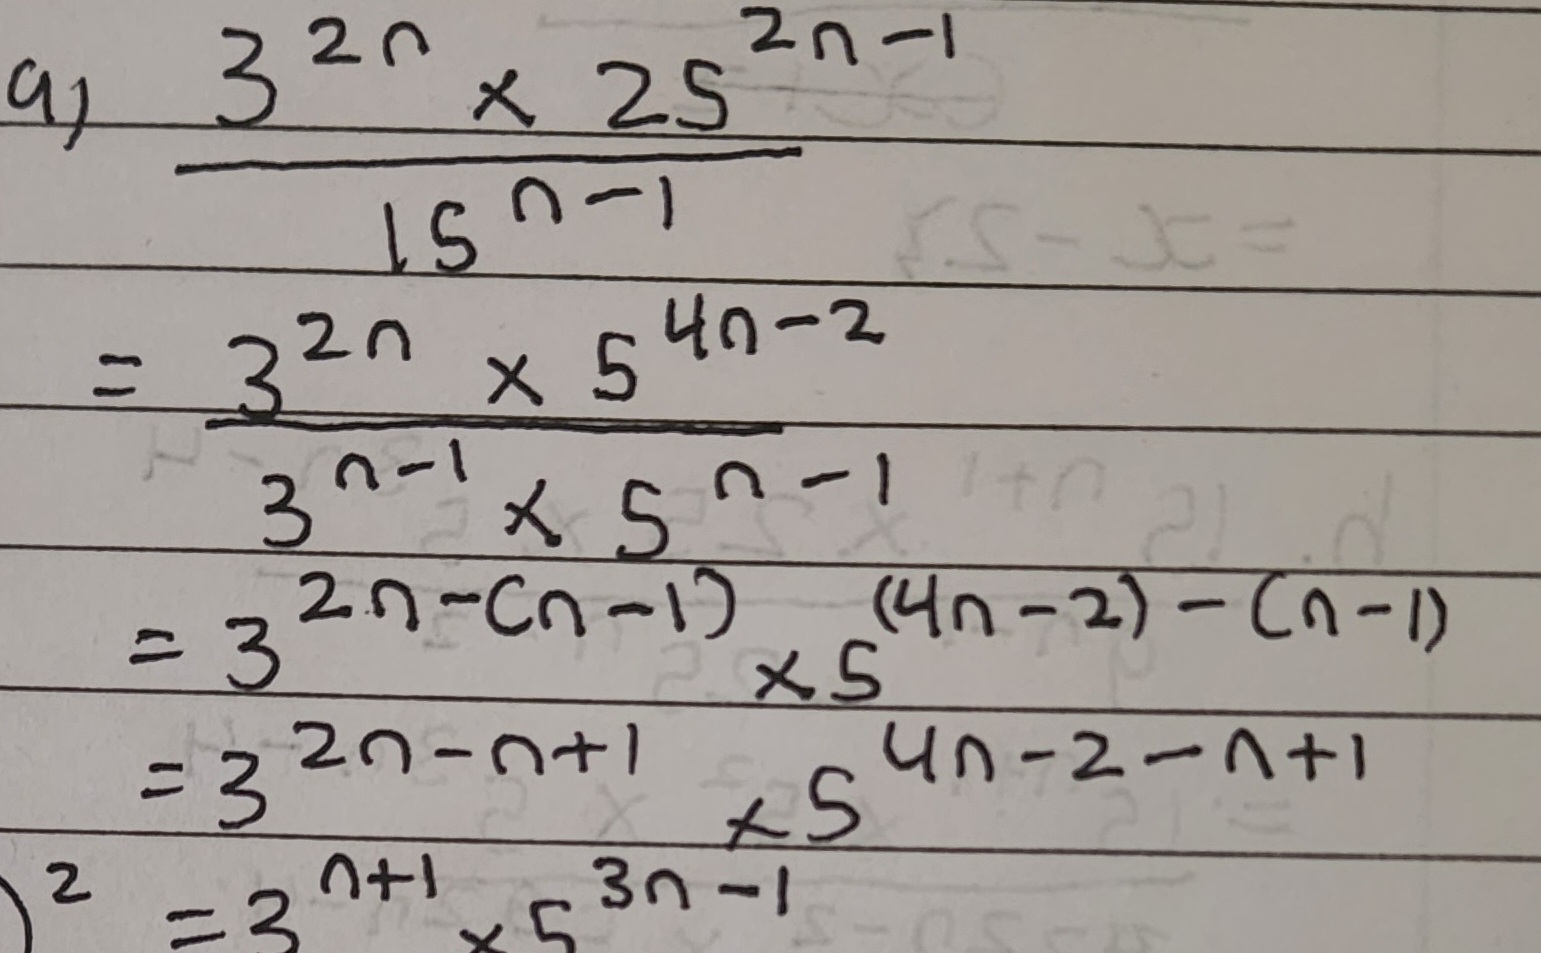 a) 3^{2n} × 25^{2n-1}
15^{n-1}
= 3^{2n} × 5^{4n-2}
3^{n-1} × 5^{n-1}
= 3^{2n-(n-1)} × 5^{(4n-2)-(n-1)}
= 3^{2n-n+1} × 5^{4n-2-n+1}
)^2 = 3^{n+1} × 5^{3n-1}